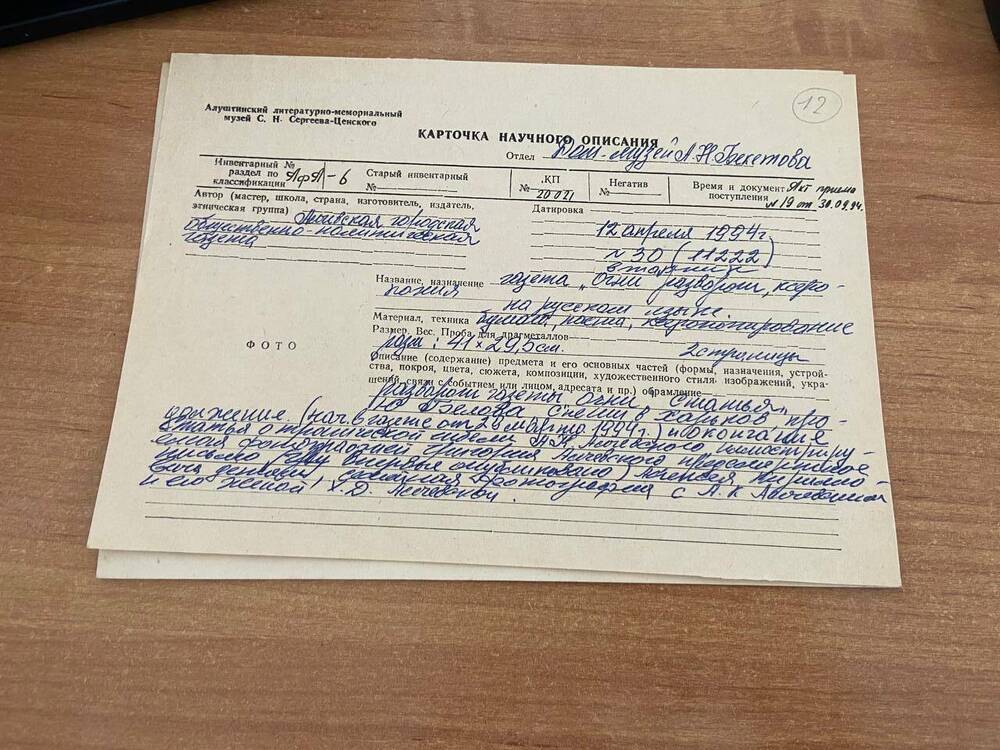 12
Алуштинский литературно-мемориальный
музей С. Н. Сергеева-Ценского
КАРТОЧКА НАУЧНОГО ОПИСАНИЯ
Отдел Дом-музей А.Н. Бекетова
Инвентарный №
раздел по
классификации АфА-6
Старый инвентарный
№
КП
№ 20021
Негатив
№
Время и документ Акт приема
поступления №19 от 30.09.94.
Автор (мастер, школа, страна, изготовитель, издатель,
этническая группа) городская
общественно-политическая
газета
Датировка
12 апреля 1994г.
№30 (11222)
вторник
Название, назначение газета "Огни разворот, ксеро-
копия
на русском языке.
Материал, техника бумага, паста, ксерокопирование
Размер. Вес. Проба для драгметаллов
разм: 41×29,5см. 2 страницы
Описание (содержание) предмета и его основных частей (формы, назначения, устрой-
ства, покроя, цвета, сюжета, композиции, художественного стиля изображений, укра-
шений, связи с событием или лицом, адресата и пр.) обрамление
ФОТО
разворот газеты Огни статья
Ю. Белова Харьков, про-
должение (нач. в газете от 28 марта 1994г.) и окончания
статья о трагической Алчевского
фотографией Григория Алчевского предсмертное
письмо впервые опубликовано) Алексея Кирилло-
вича фотография с А.К. Алчевским
и его женой Х.Д. Алчевской.